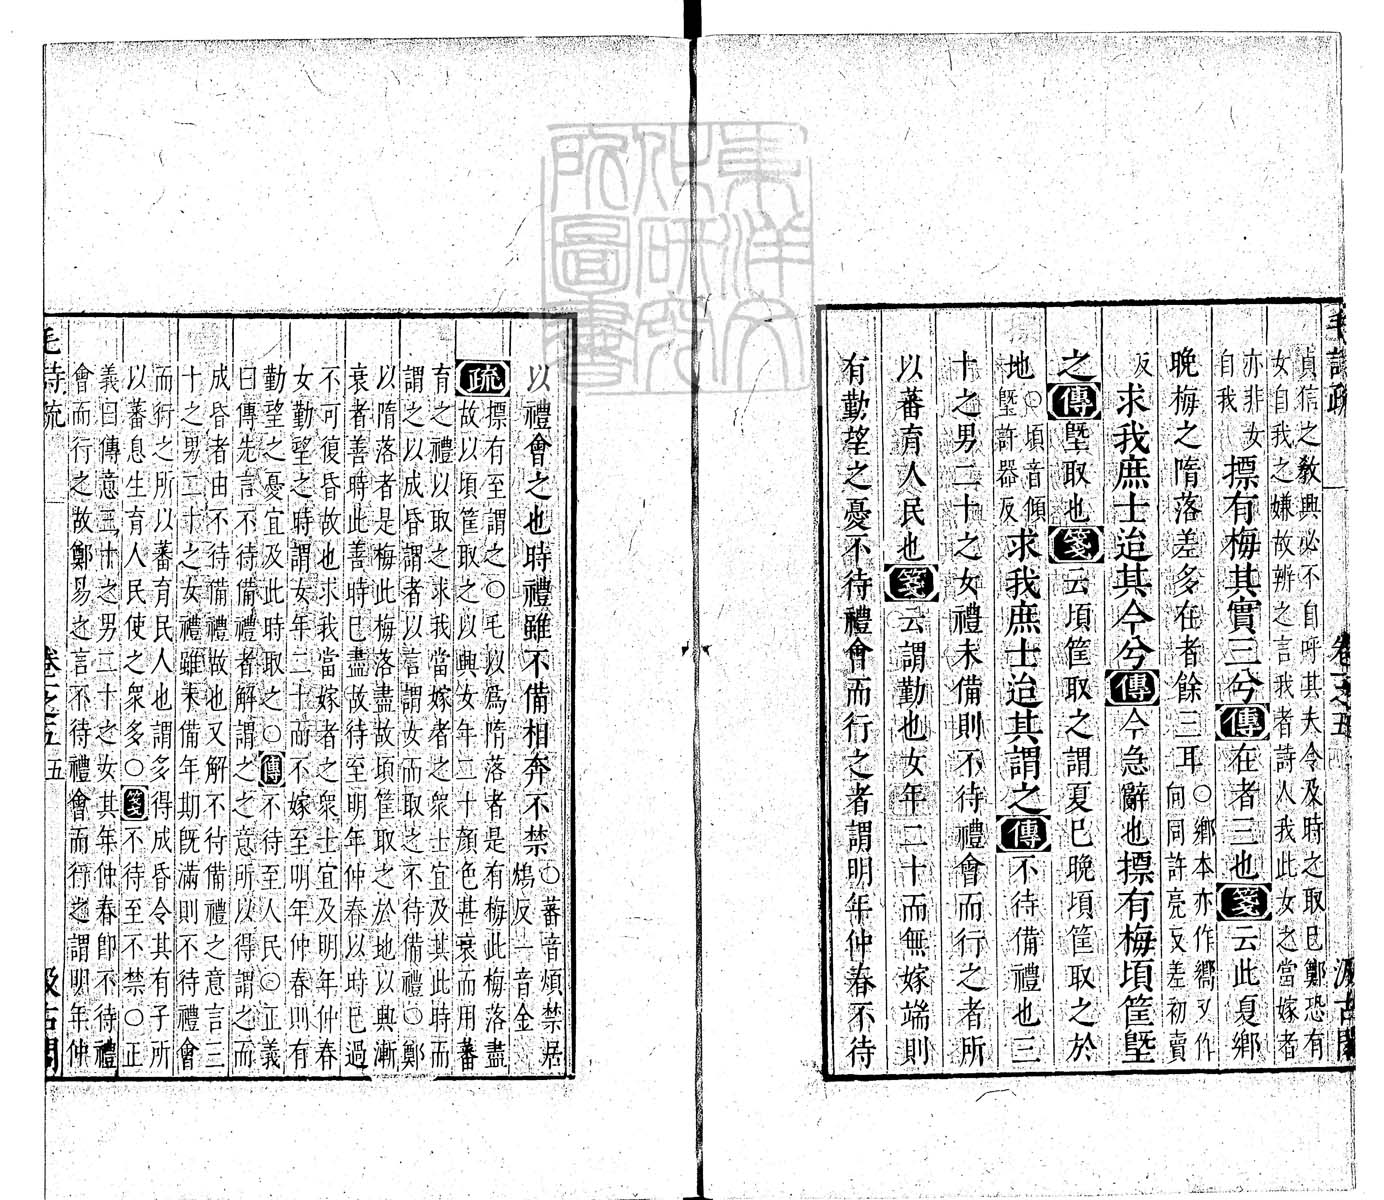 毛詩疏
卷一之五
汲古閣
貞信之教興必不自呼其夫令及時之取已鄭恐有
女自我之嫌故辨之言我者詩人我此女之當嫁者
亦非女
自我
摽有梅其實三兮傳在者三也箋云此夏鄉
晚梅之隋落差多在者餘三耳
○鄉本亦作嚮又作
向同許亮反差初賣
反
求我庶士迨其今兮傳今急辭也摽有梅頃筐塈
之傳塈取也箋云頃筐取之謂夏已晚頃筐取之於
地
○頃音傾
塈許器反
求我庶士迨其謂之傳不待備禮也三
十之男二十之女禮未備則不待禮會而行之者所
以蕃育人民也箋云謂勤也女年二十而無嫁端則
有勤望之憂不待禮會而行之者謂明年仲春不待
以禮會之也時禮雖不備相奔不禁
○蕃音煩禁居
鴆反一音金
疏
摽有至謂之○毛以為隋落者是有梅此梅落盡
故以頃筐取之以興女年二十顏色甚衰而用蕃
育之禮以取之求我當嫁者之眾士宜及其此時而
謂之以成昏謂者以言謂女而取之不待備禮○鄭
以隋落者是梅此梅落盡故頃筐取之於地以興漸
衰者善時此善時已盡故待至明年仲春以時已過
不可復昏故也求我當嫁者之眾士宜及明年仲春
女勤望之時謂女年二十而不嫁至明年仲春則有
勤望之憂宜及此時取之○傳不待至人民○正義
曰傳先言不待備禮者解謂之之意所以得謂之而
成昏者由不待備禮故也又解不待備禮之意言三
十之男二十之女禮雖未備年期既滿則不待禮會
而行之所以蕃育民人也謂多得成昏令其有子所
以蕃息生育人民使之眾多○箋不待至不禁○正
義曰傳意三十之男二十之女其年仲春即不待禮
會而行之故鄭易之言不待禮會而行之謂明年仲
毛詩疏
卷一之五
五
汲古閣